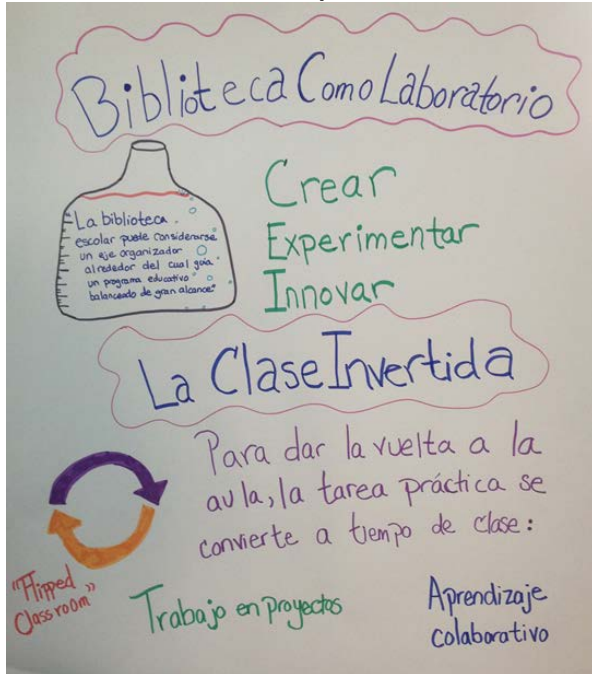 Biblioteca Como Laboratorio
La biblioteca
escolar puede considerarse
un eje organizador
alrededor del cual guia
un programa educativo
balanceado de gran alcance"
Crear
Experimentar
Innovar
La Clase Invertida
Para dar la vuelta a la
aula, la tarea práctica se
convierte a tiempo de clase:
"Flipped
Classroom"
Trabajo en proyectos
Aprendizaje
colaborativo